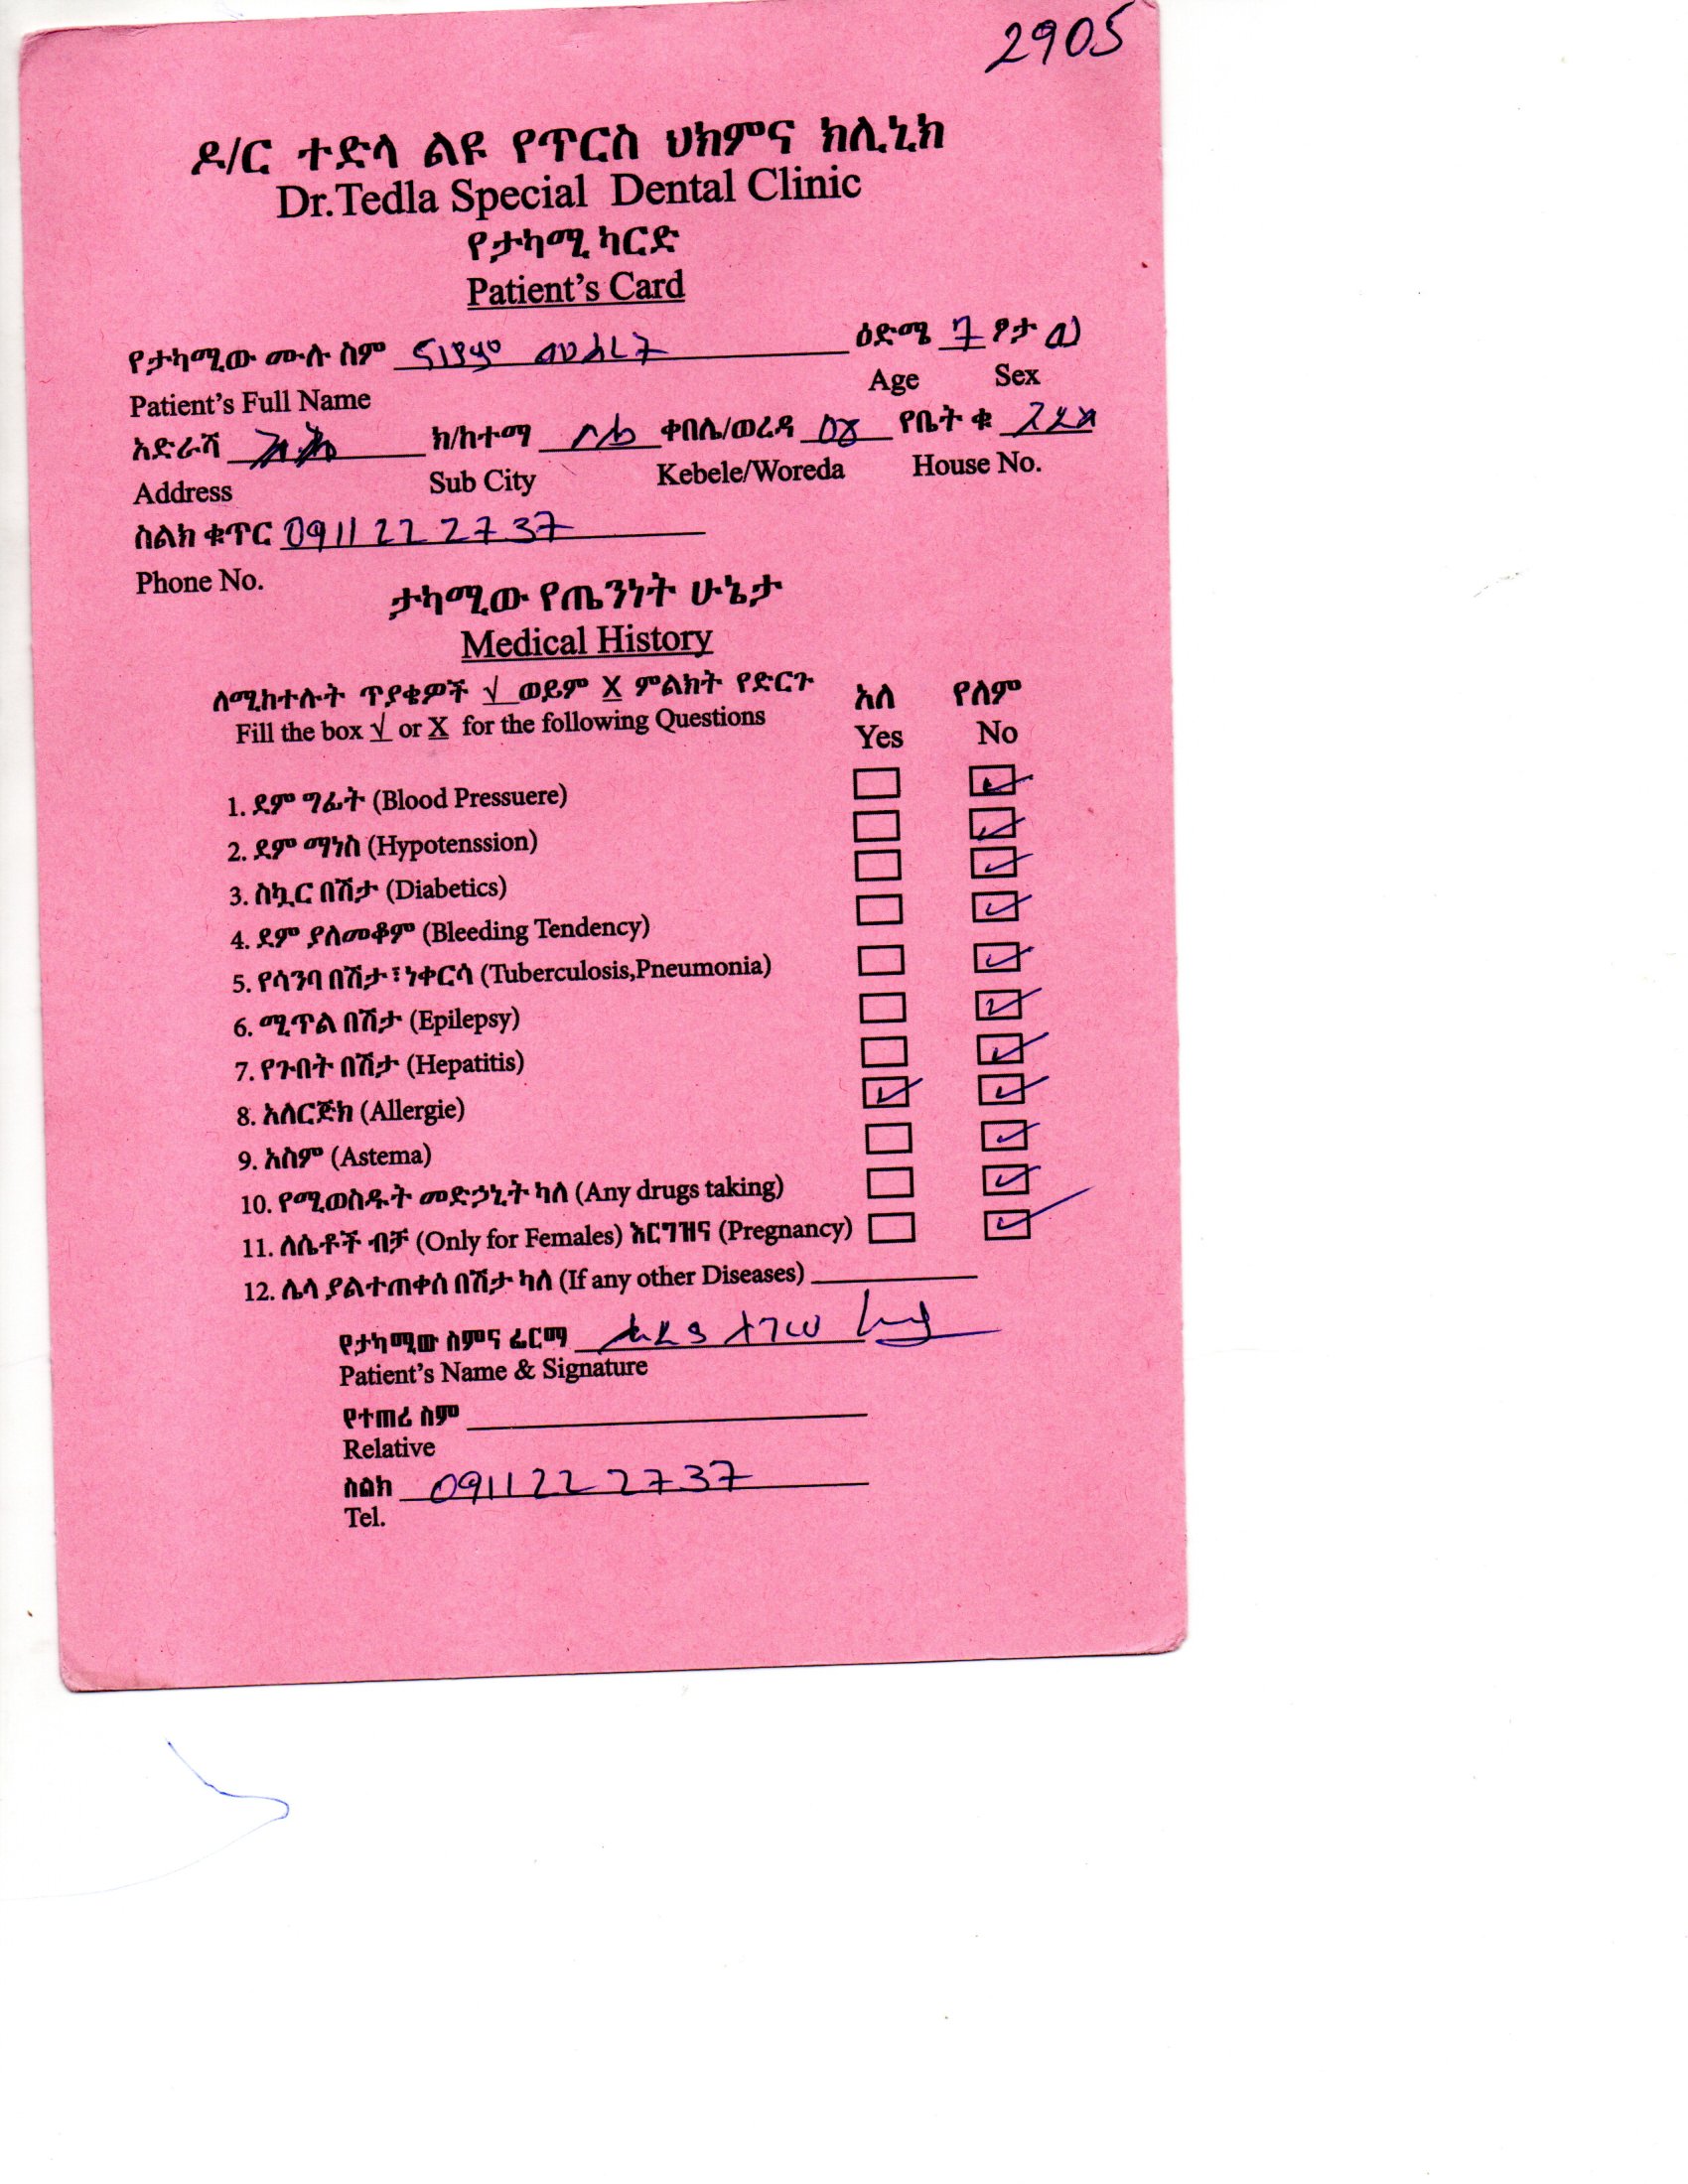 2905
ዶ/ር ተድላ ልዩ የጥርስ ህክምና ክሊኒክ
Dr.Tedla Special Dental Clinic
የታካሚ ካርድ
Patient's Card
የታካሚው ሙሉ ስም ዕድሜ 7 ፆታ ወ
Patient's Full Name Age Sex
አድራሻ ክ/ከተማ ቀበሌ/ወረዳ 08 የቤት ቁ
Address Sub City Kebele/Woreda House No.
ስልክ ቁጥር 0911 22 27 37
Phone No.
ታካሚው የጤንነት ሁኔታ
Medical History
ለሚከተሉት ጥያቄዎች √ ወይም X ምልክት የድርጉ አለ የለም
Fill the box √ or X for the following Questions Yes No
1. ደም ግፊት (Blood Pressuere)
2. ደም ማነስ (Hypotenssion)
3. ስኳር በሽታ (Diabetics)
4. ደም ያለመቆም (Bleeding Tendency)
5. የሳንባ በሽታ፣ ነቀርሳ (Tuberculosis,Pneumonia)
6. ሚጥል በሽታ (Epilepsy)
7. የጉበት በሽታ (Hepatitis)
8. አለርጅክ (Allergie)
9. አስም (Astema)
10. የሚወስዱት መድኃኒት ካለ (Any drugs taking)
11. ለሴቶች ብቻ (Only for Females) እርግዝና (Pregnancy)
12. ሌላ ያልተጠቀሰ በሽታ ካለ (If any other Diseases)
የታካሚው ስምና ፊርማ
Patient's Name & Signature
የተጠሪ ስም
Relative
ስልክ 0911 22 27 37
Tel.